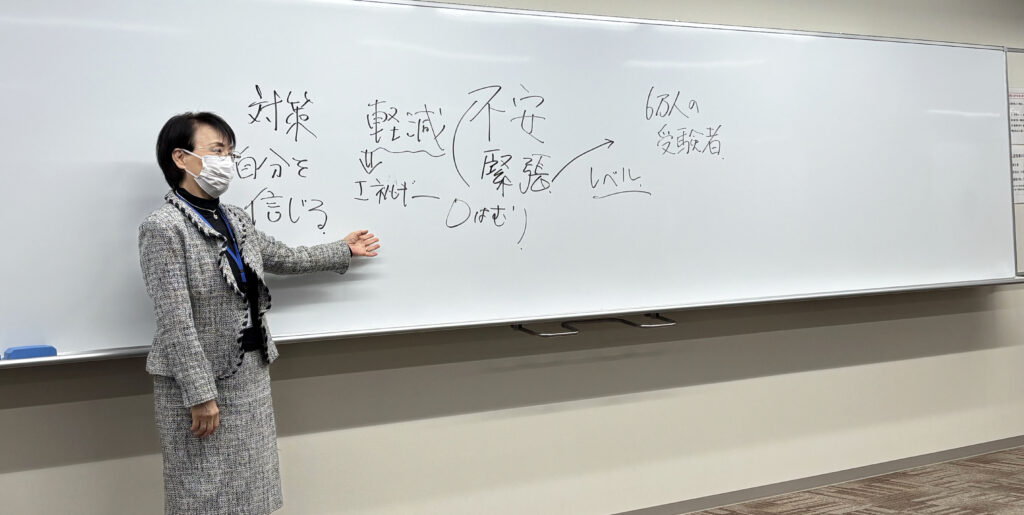 対策
自分を
信じる
軽減
エネルギー
不安
緊張
0はむり
6万人の
受験者
レベル